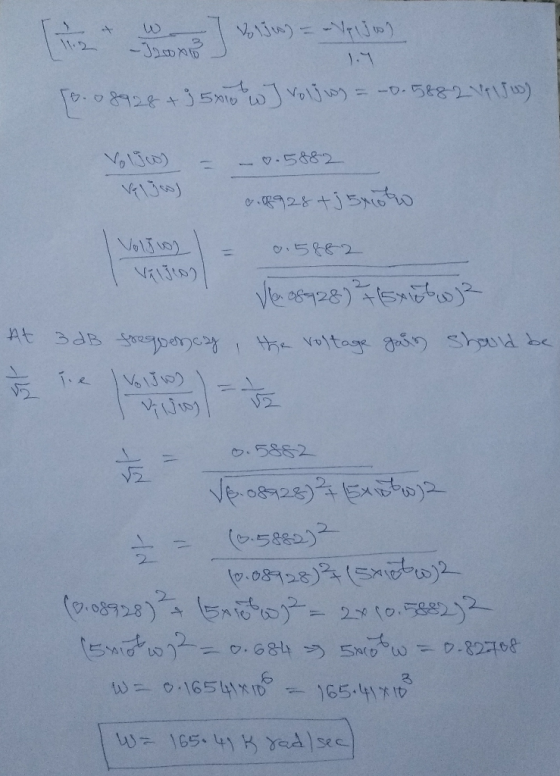 [1/11.2 + ω/-j200×10³] Vo(jω) = -Vi(jω)/1.7
[0.08928 + j5×10⁻⁶ω] Vo(jω) = -0.5882 Vi(jω)
Vo(jω)/Vi(jω) = -0.5882/0.08928+j5×10⁻⁶ω
|Vo(jω)/Vi(jω)| = 0.5882/√(0.08928)²+(5×10⁻⁶ω)²
At 3dB frequency, the voltage gain should be
1/√2 i.e |Vo(jω)/Vi(jω)| = 1/√2
1/√2 = 0.5882/√(0.08928)²+(5×10⁻⁶ω)2
1/2 = (0.5882)²/(0.08928)²+(5×10⁻⁶ω)2
(0.08928)²+(5×10⁻⁶ω)² = 2×(0.5882)2
(5×10⁻⁶ω)² = 0.684 ⇒ 5×10⁻⁶ω = 0.82708
ω = 0.16541×10⁶ = 165.41×10³
ω = 165.41 K rad/sec